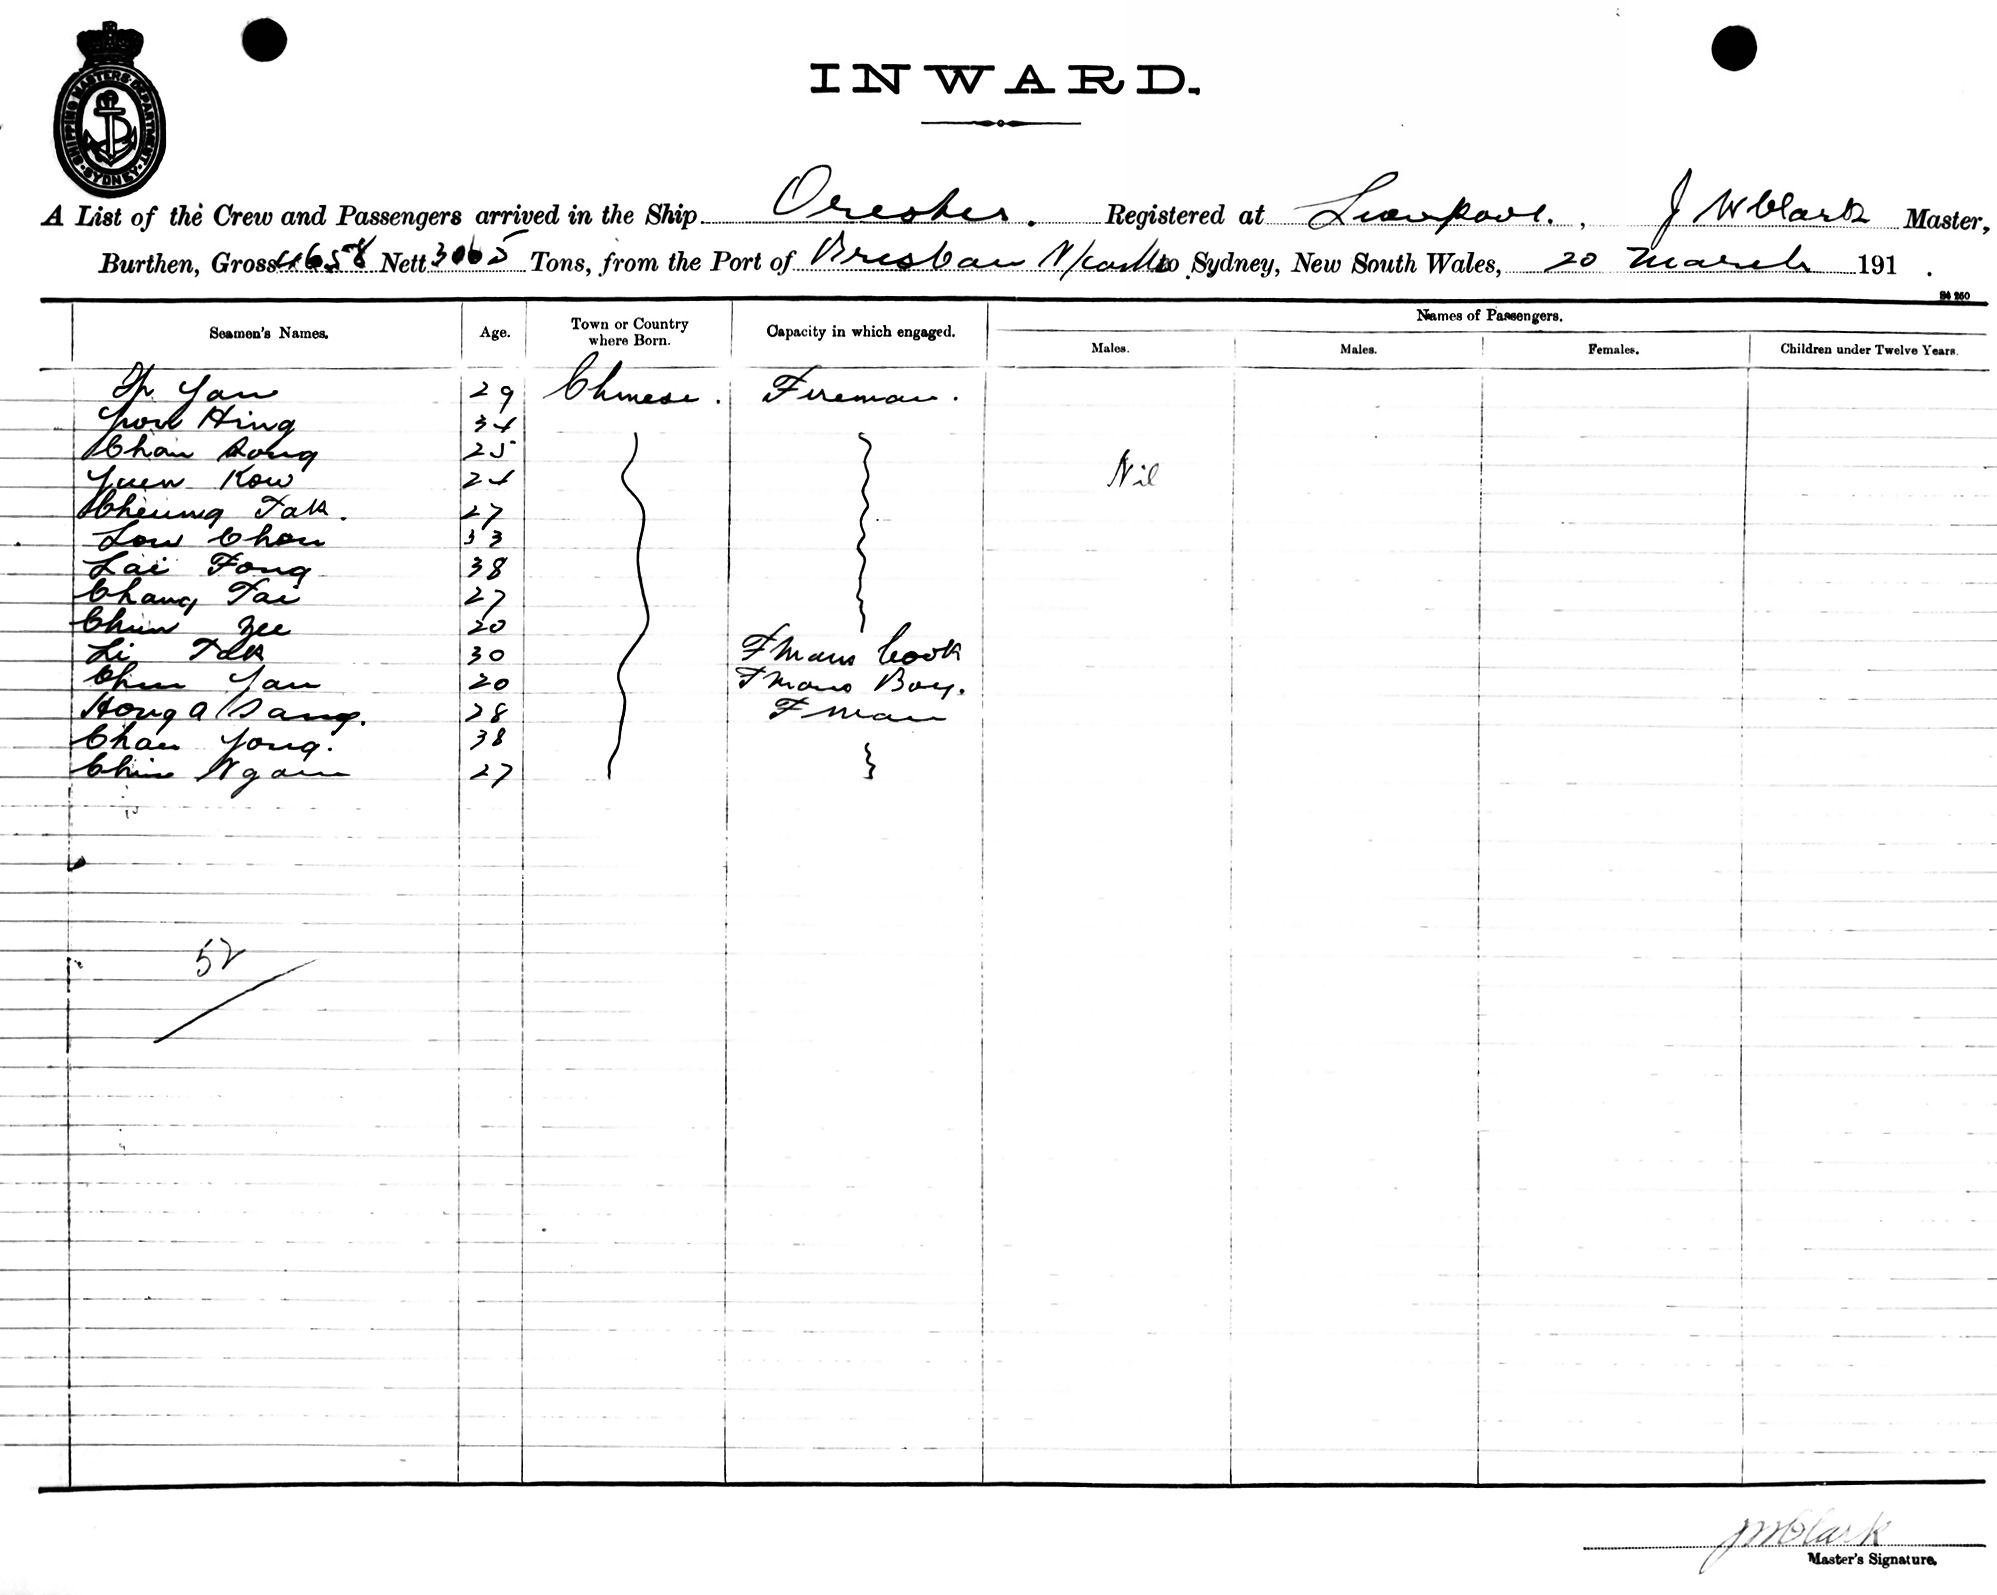 SHIPPING MASTERS DEPARTMENT
SYDNEY
INWARD.
A List of the Crew and Passengers arrived in the Ship Orestes. Registered at Liverpool., J W Clark Master,
Burthen, Gross 4658 Nett 3065 Tons, from the Port of Brisban N/castle to Sydney, New South Wales, 20 March 191 .
S4 250
Seamen's Names. Age. Town or Country where Born. Capacity in which engaged. Names of Passengers.
Males. Males. Females. Children under Twelve Years.
Yan 29 Chinese. Fireman.
Yow Hing 34
Chan Song 25
Yuen Kow 24 Nil
Cheung Tak. 27
Low Chou 33
Lai Fong 38
Chang Tai 27
Chun Yee 20
Li Tak 30 Fmans Cook
Chun Yau 20 Fmans Boy.
Hong A Sang. 28 Fman
Chan Yong. 38
Chin Ngain 27
52
J W Clark
Master's Signature.